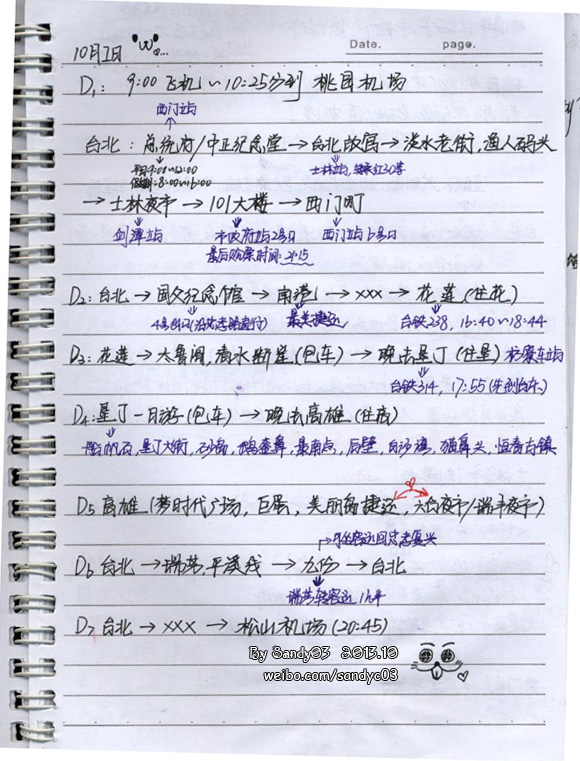 10月1日
Date. page.
D1: 9:00 飞机~10:25分到 桃园机场
西门站
台北: 总统府/中正纪念堂→台北故宫→淡水老街,渔人码头
平日9:00~12:00
假期:8:00~16:00
士林站,红30等
→士林夜市→101大楼→西门町
剑潭站 市政府站2号口 西门站6号口
最后购票时间:21:15
D2:台北→国父纪念馆→南港→xxx→花莲(住花)
4号出口 最美捷运 台铁238, 16:40~18:44
D3:花莲→太鲁阁,清水断崖(包车)→晚去垦丁(住垦)
台铁314, 17:55(先到台东)
D4:垦丁一日游(包车)→晚去高雄(住高)
船帆石,垦丁大街,砂岛,鹅銮鼻,最南点,后壁,白沙湾,猫鼻头,恒春古镇
D5 高雄(梦时代广场,巨蛋,美丽岛捷运,六合夜市/瑞丰夜市)
D6 台北→瑞芳.平溪线→九份→台北
D7 台北→xxx→松山机场(20:45)
By Sandy03 2013.10
weibo.com/sandyc03